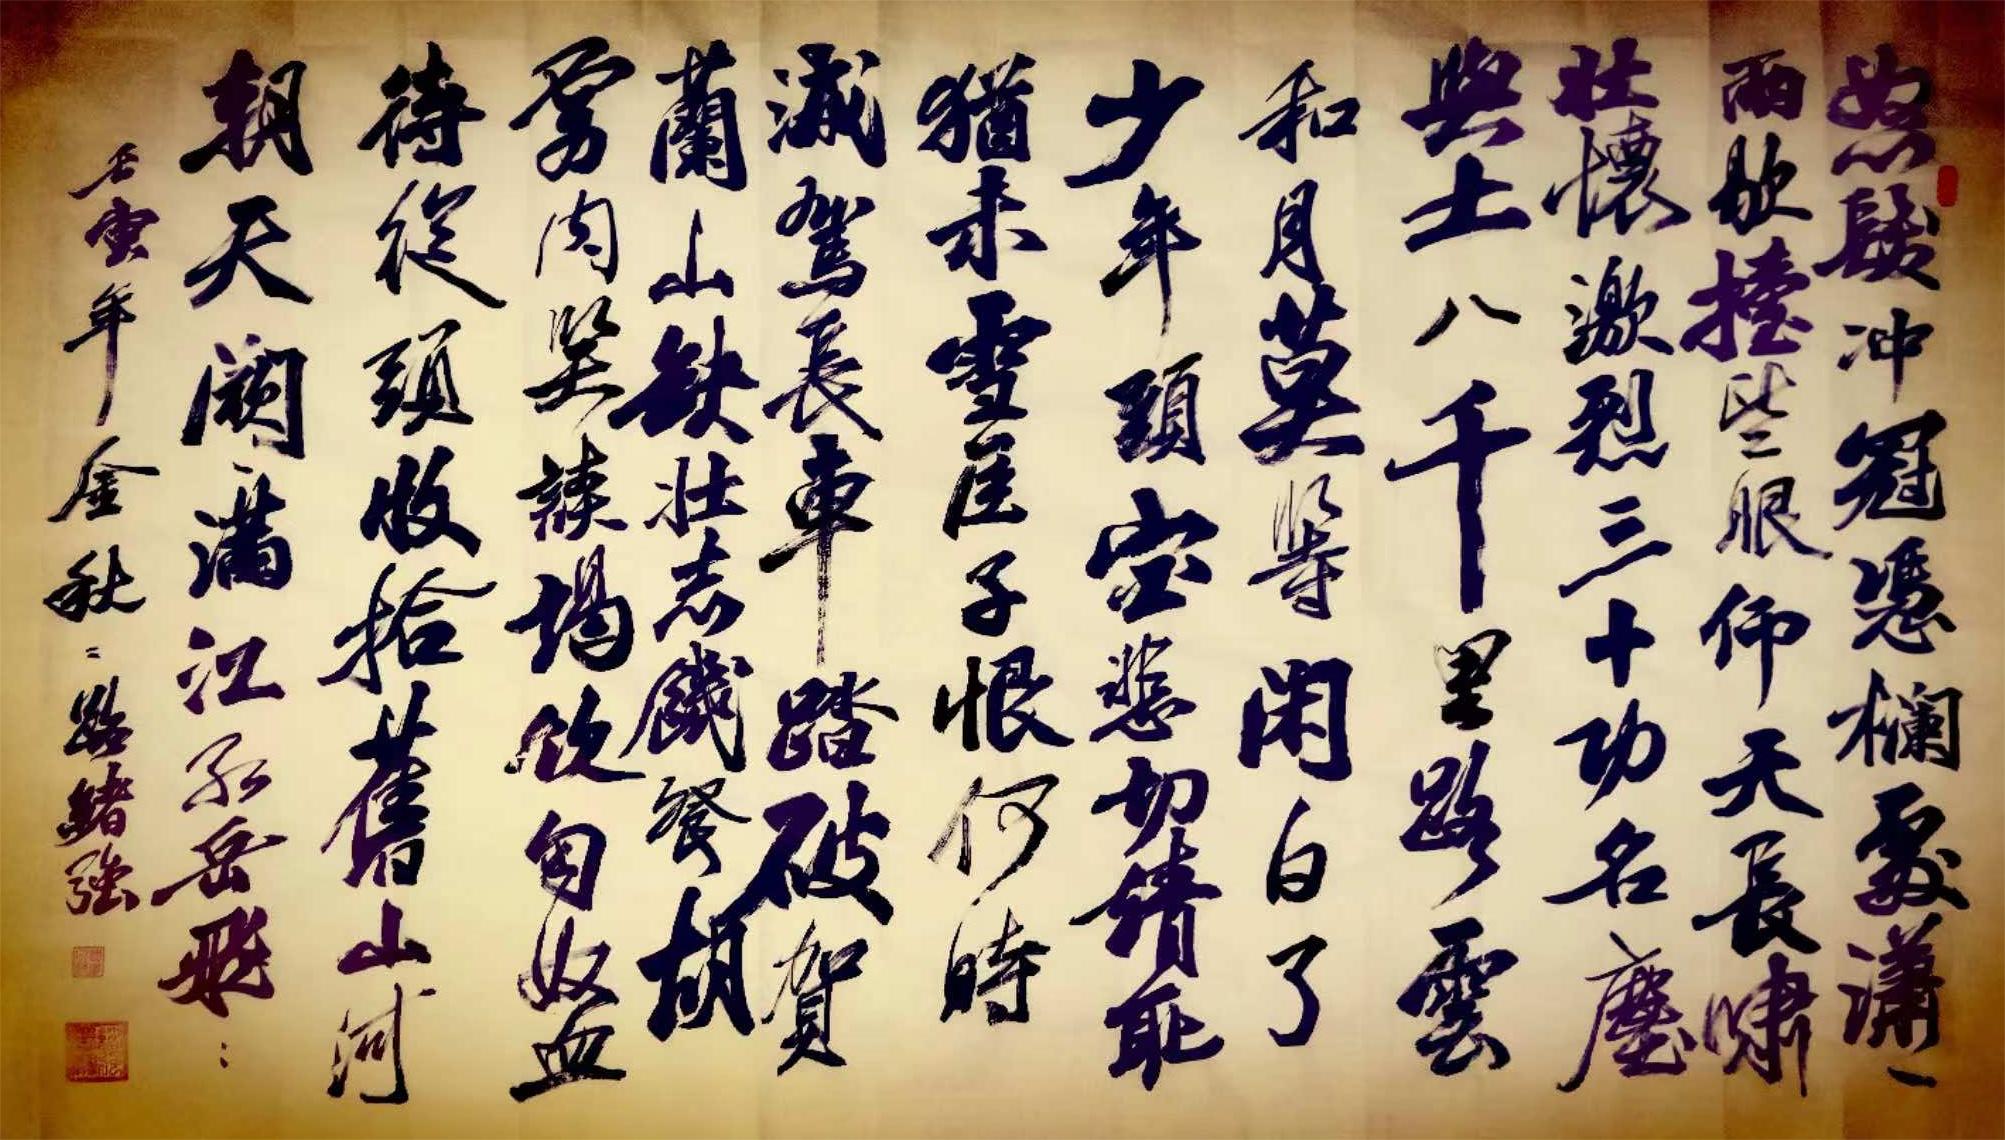 怒髮冲冠憑欄處瀟々
雨歇擡望眼仰天長嘯
壯懷激烈三十功名塵
與土八千里路雲
和月莫等閑白了
少年頭空悲切靖耻
猶未雪臣子恨何時
滅駕長車踏破賀
蘭山缺壯志饑餐胡
虜肉笑談渴飲匈奴血
待從頭收拾舊山河
朝天闕滿江紅岳飛
壬寅年金秋路緒強